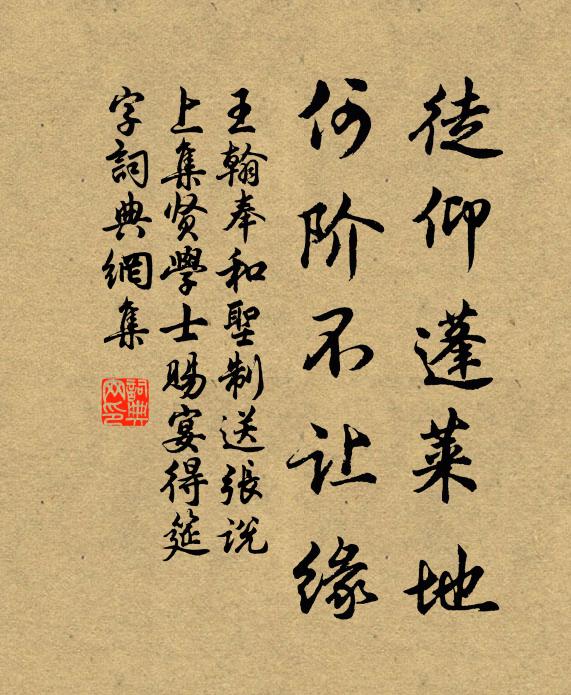 徒仰蓬莱地
何阶不让缘
王翰奉和聖制送張说
上集贤學士赐宴得筵
字詞典網集
詞典
网印